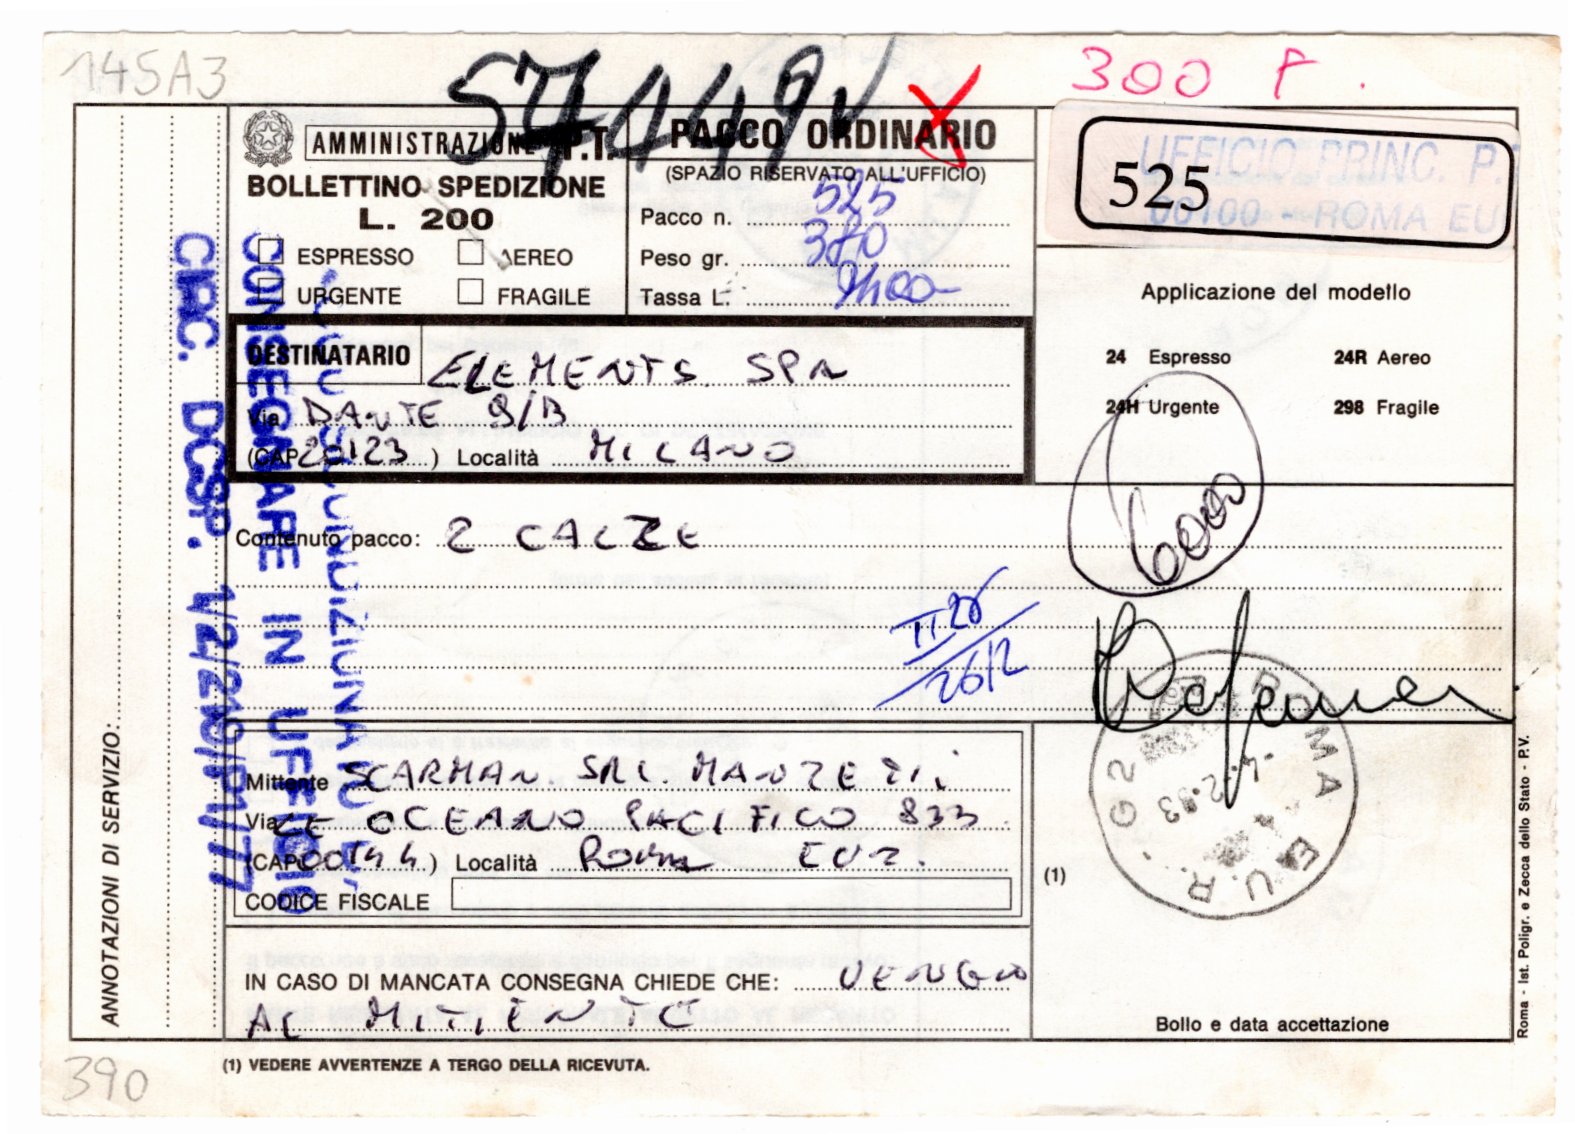 145A3
57449V
300 P.
AMMINISTRAZIONE P.T.
BOLLETTINO SPEDIZIONE
L. 200
ESPRESSO AEREO
URGENTE FRAGILE
PACCO ORDINARIO
(SPAZIO RISERVATO ALL'UFFICIO)
Pacco n. 525
Peso gr. 370
Tassa L.
UFFICIO PRINC. P.T
00100 - ROMA EU
525
Applicazione del modello
24 Espresso 24R Aereo
24H Urgente 298 Fragile
DESTINATARIO ELEMENTS SPA
Via DANTE 9/B
(CAP 20123) Località MILANO
Contenuto pacco: 2 CALZE
6000
26/2
Mittente SCARMAN. SRL. MANZETTI
Via LE OCEANO PACIFICO 833
(CAP 00144) Località ROMA EUR.
CODICE FISCALE
IN CASO DI MANCATA CONSEGNA CHIEDE CHE: VENGA
AL MITTENTE
(1)
ROMA E.U.R. G2
-4.2.93
Bollo e data accettazione
ANNOTAZIONI DI SERVIZIO:
CONSEGNARE IN UFFICIO
CIRC. DCSP. 1/2/210/P1/77
Roma - Ist. Poligr. e Zecca dello Stato - P.V.
390
(1) VEDERE AVVERTENZE A TERGO DELLA RICEVUTA.